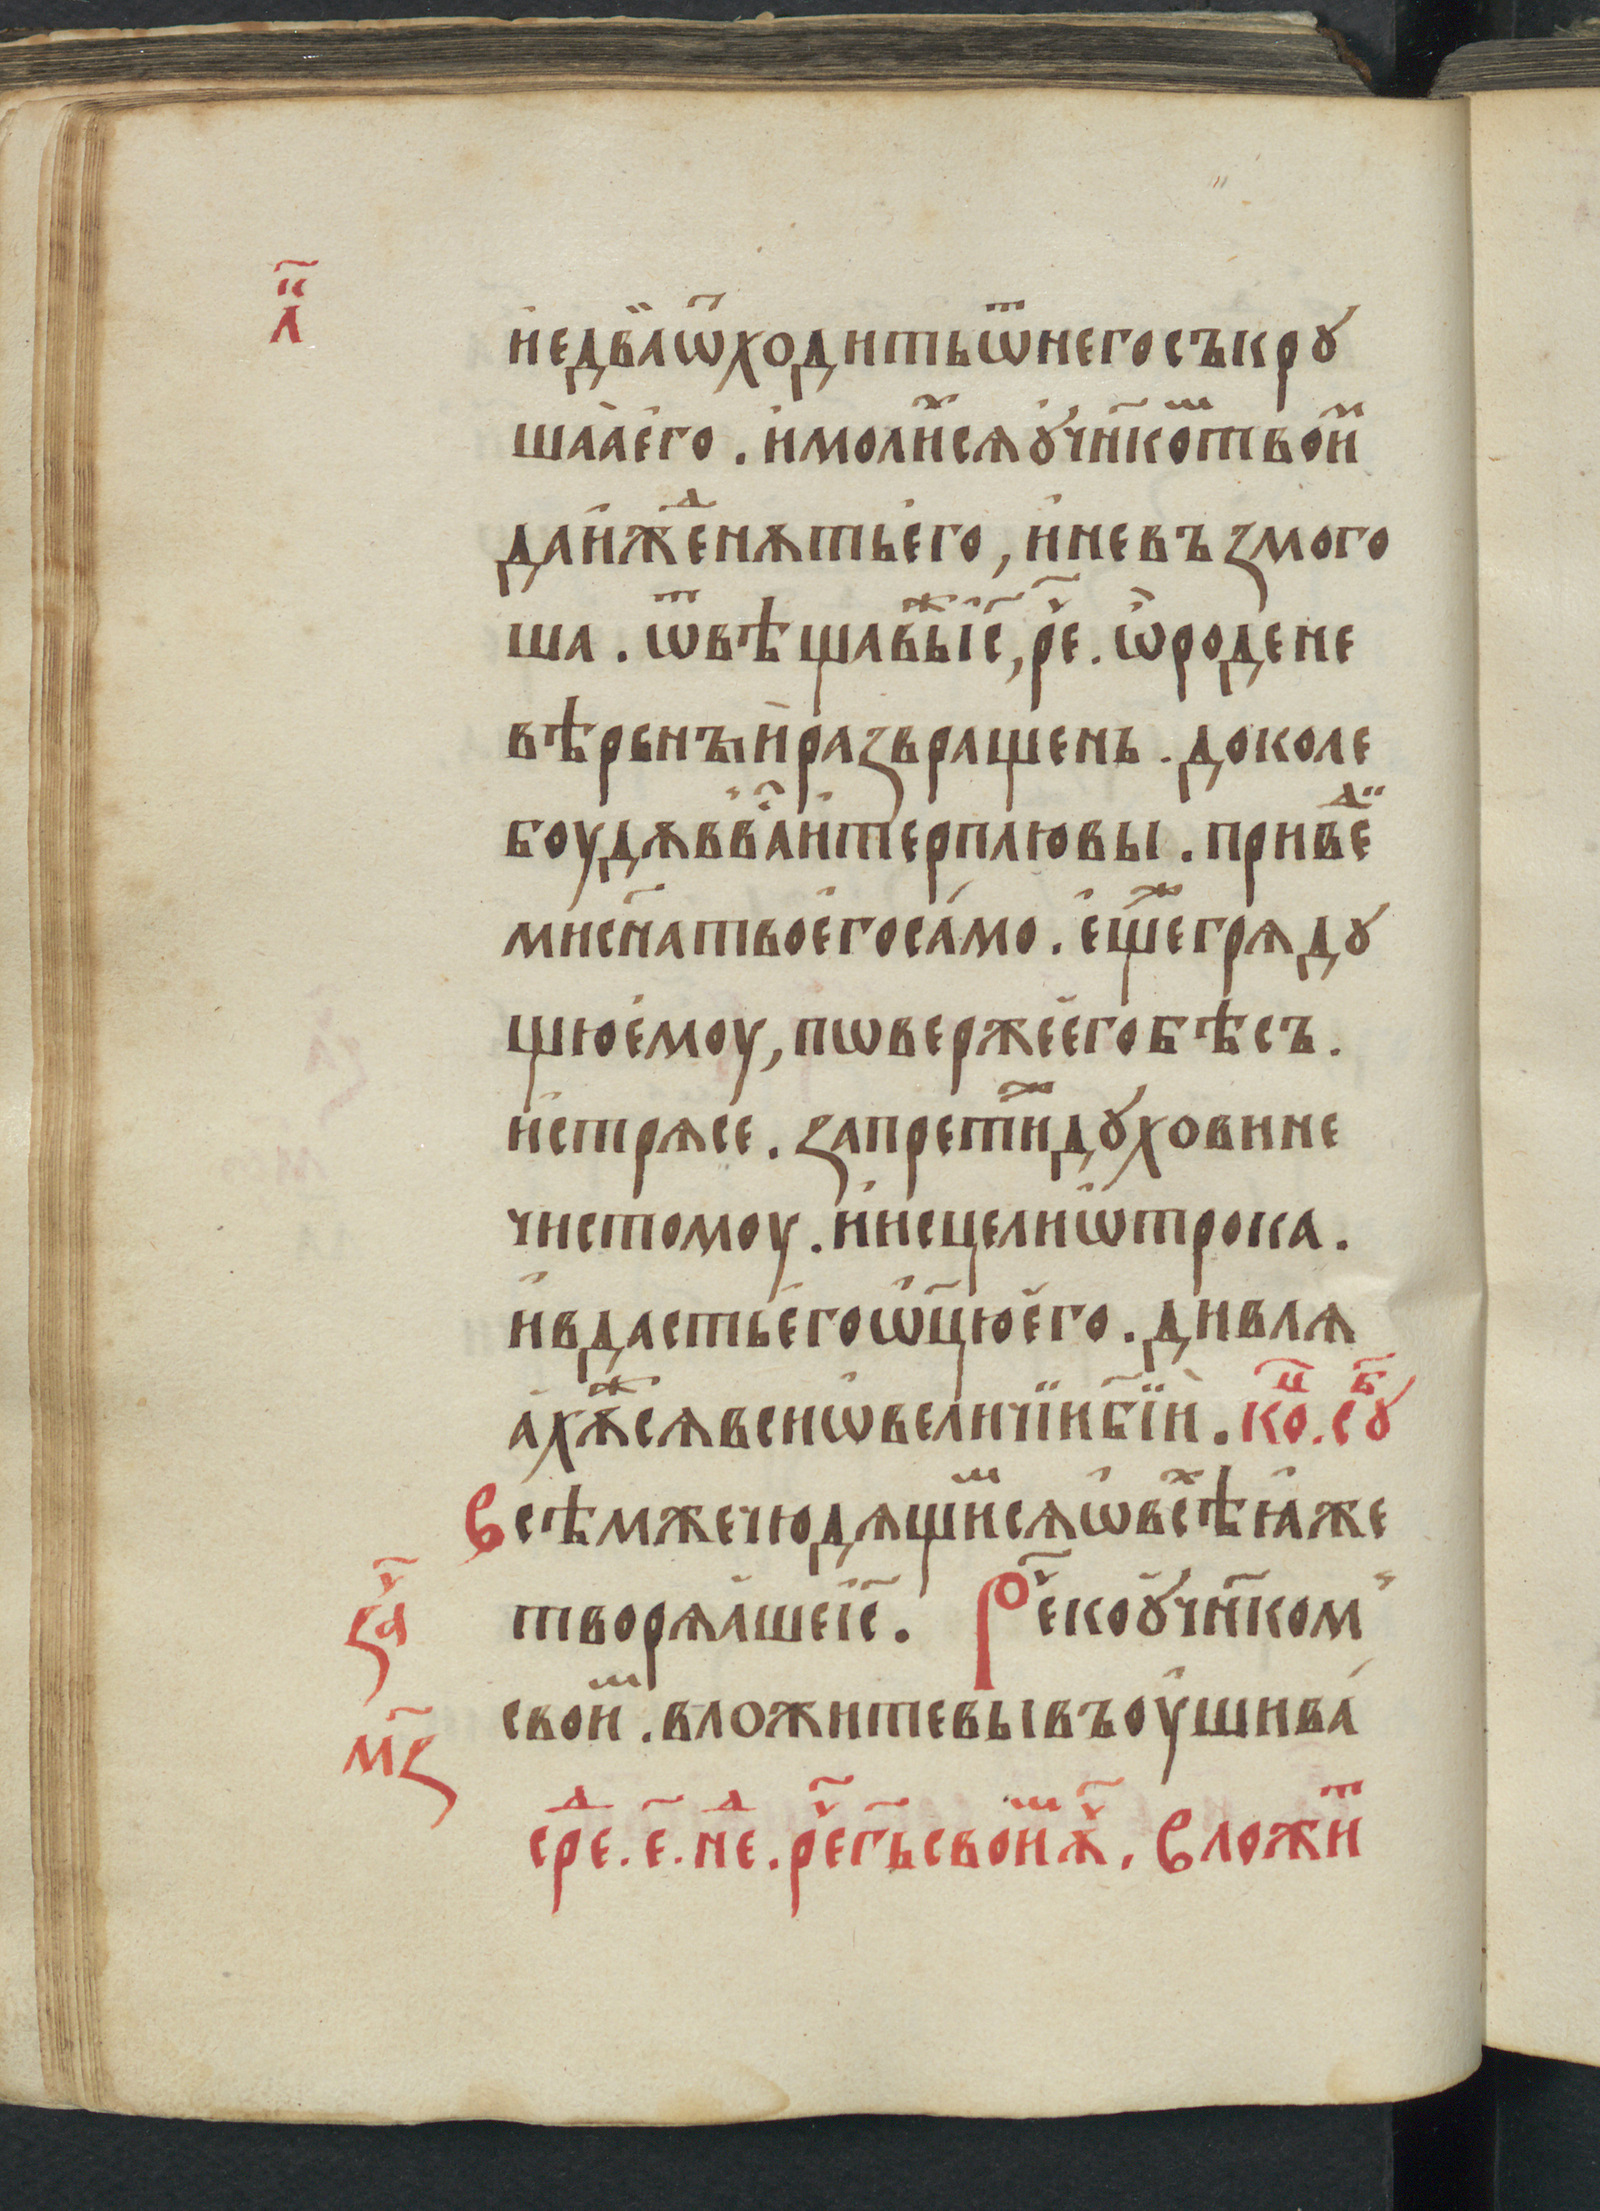 л҃и
и҆едва̀ѿхⷪ҇дитьѿнегосъкрꙋ
шаа҆е҆го. и҆моли́хсѧꙋ҆чн҃ко́мтвои́м
даи҆жⷣенѧтье҆го, и҆невъꙁмого
ша. ѿвѣщавⸯжеі҆с҃, рⷱ҇е. ѽродене
вѣрєнъіи҆раꙁвращенъ. доколе
боудѧввⷭ҇аи҆терплювы. привⷣеи
мисн҃атвоегоса́мо. е҆щежегрѧдꙋ
щюе҆моу, пѡвержее҆гобѣсъ.
и҆стрѧсе. ꙁапретижⷤедꙋховине
чистомоу. и҆исцелиѡ҆трока.
и҆вдастье҆гоѡ҆ц҃юе҆го. дивлѧ
а҆хꙋжесѧвсиѡ҆величїиб҃їи. коⷰ҇. сꙋⷠ҇
Всѣмжечюдѧщи́мсѧѡ҆всѣ́хꙗ҆же
творѧ́шеі҆с҃. Рⷱ҇екоꙋ҆чн҃ком
свои́м. вложитевывъоу҆шива́
срⷣе. е҃. неⷣ. рⷱ҇ег҃ьсвои́мꙋⷱ҇. Вложи́т
ꙁⷱ҇а
м҃ꙁ